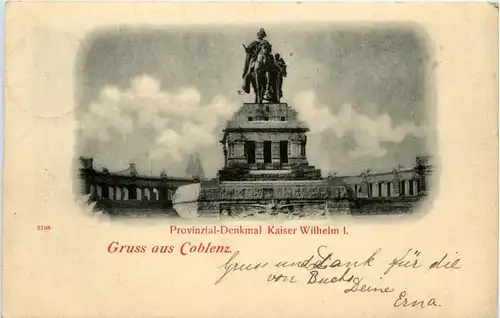 Provinzial-Denkmal Kaiser Wilhelm I.
9108
Gruss aus Coblenz.
Gruss und Dank für die
von Buchs Deine
Erna.